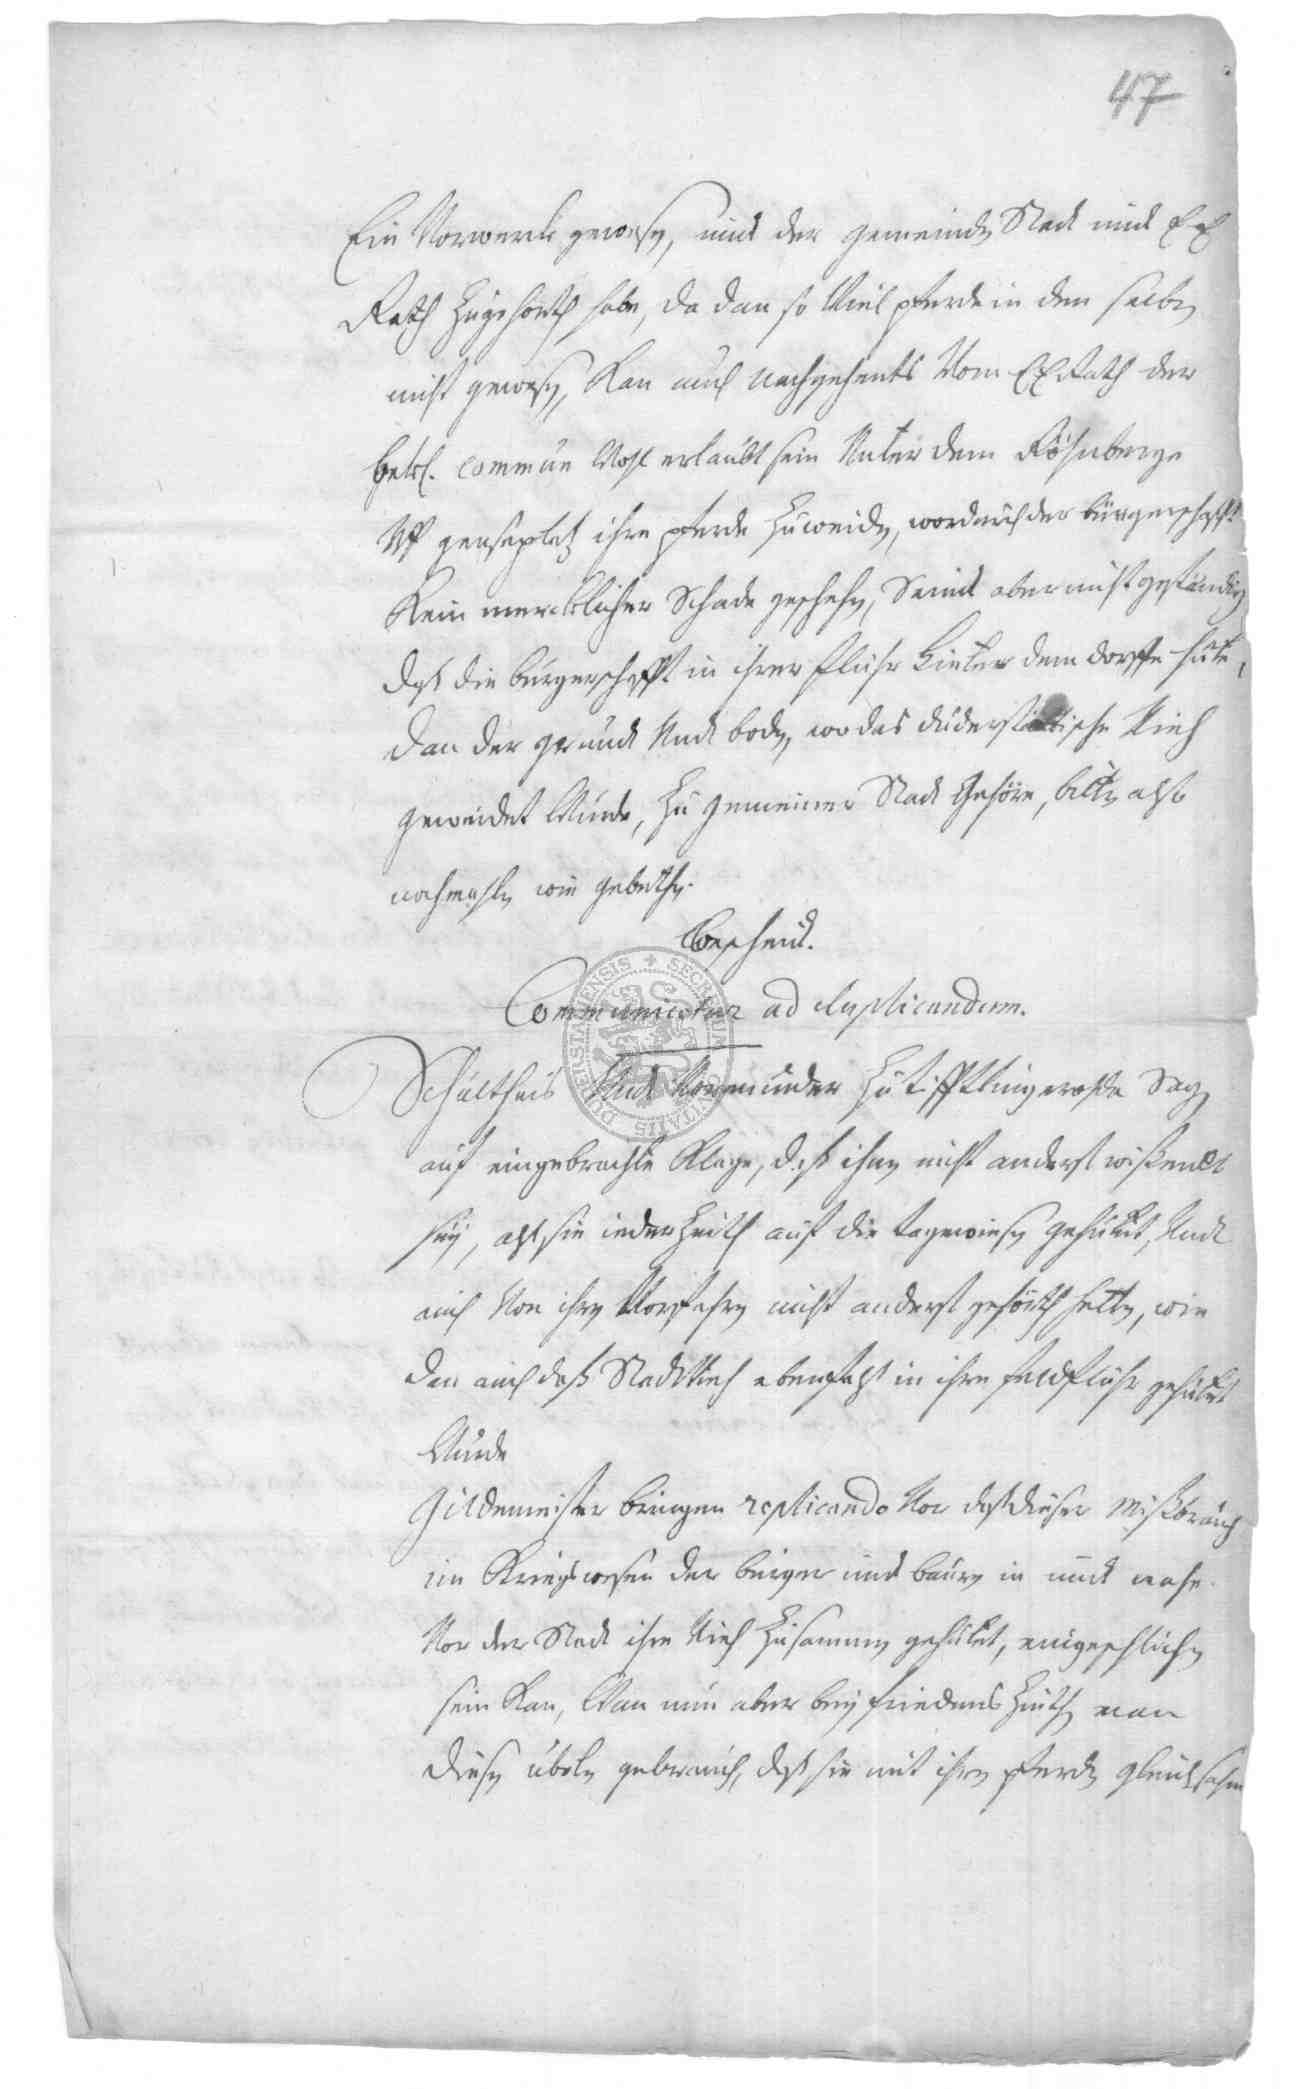 47
Ein Vorwerck gewesen, undt der gemeinden Stadt undt EE
Rath zugehörth habe, da dan so Viel pferde in dem selben
nicht gewesen, Kan auch nachgehents Vom EE Rath der
commun Wohl erlaubt sein Unter dem
Uff genseplatz ihre pferde zu weiden, wordurch der bürgerschafft
Kein mercklicher Schade geschehen, Seindt aber nicht geständig
daß die bürgerschafft in ihrer fluhr hinter dem dorffe hüte,
dan der grundt Undt boden, wo das duderstättische Vieh
geweidet Würde, zu gemeiner Stadt Gehöre, bitten also
nochmahlen wie gebethen.
Bescheidt.
Communicetur ad duplicandum.
SECRETUM CIVITATIS DUDERSTATENSIS
Schultheis Undt Vormünder zu Tifftlingeroda Sagen
auf eingebrachte Klage, daß ihnen nicht anderst wißendt
sey, alß sie iederzeith auf die tagewiesen gehütet, Undt
auch Von ihren Vorfahren nicht anderst gehörth hetten, wie
dan auch daß Stadt Vieh ebenfalß in ihre feldfluhr gehütet
Würde
Gildemeister bringen replicando Vor daß dieser Mißbrauch
im Kriegswesen der bürger undt bauren in undt nahe
Vor der Stadt ihre Vieh zusammen gehütet, eingeschlichen
sein Kan, Wan nun aber bey friedens Zeithen man
diesen übelen gebrauch, daß sie mit ihren pferden gleichsahm